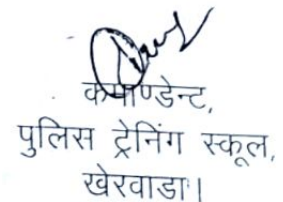 कमाण्डेन्ट,
पुलिस ट्रेनिंग स्कूल,
खेरवाडा।